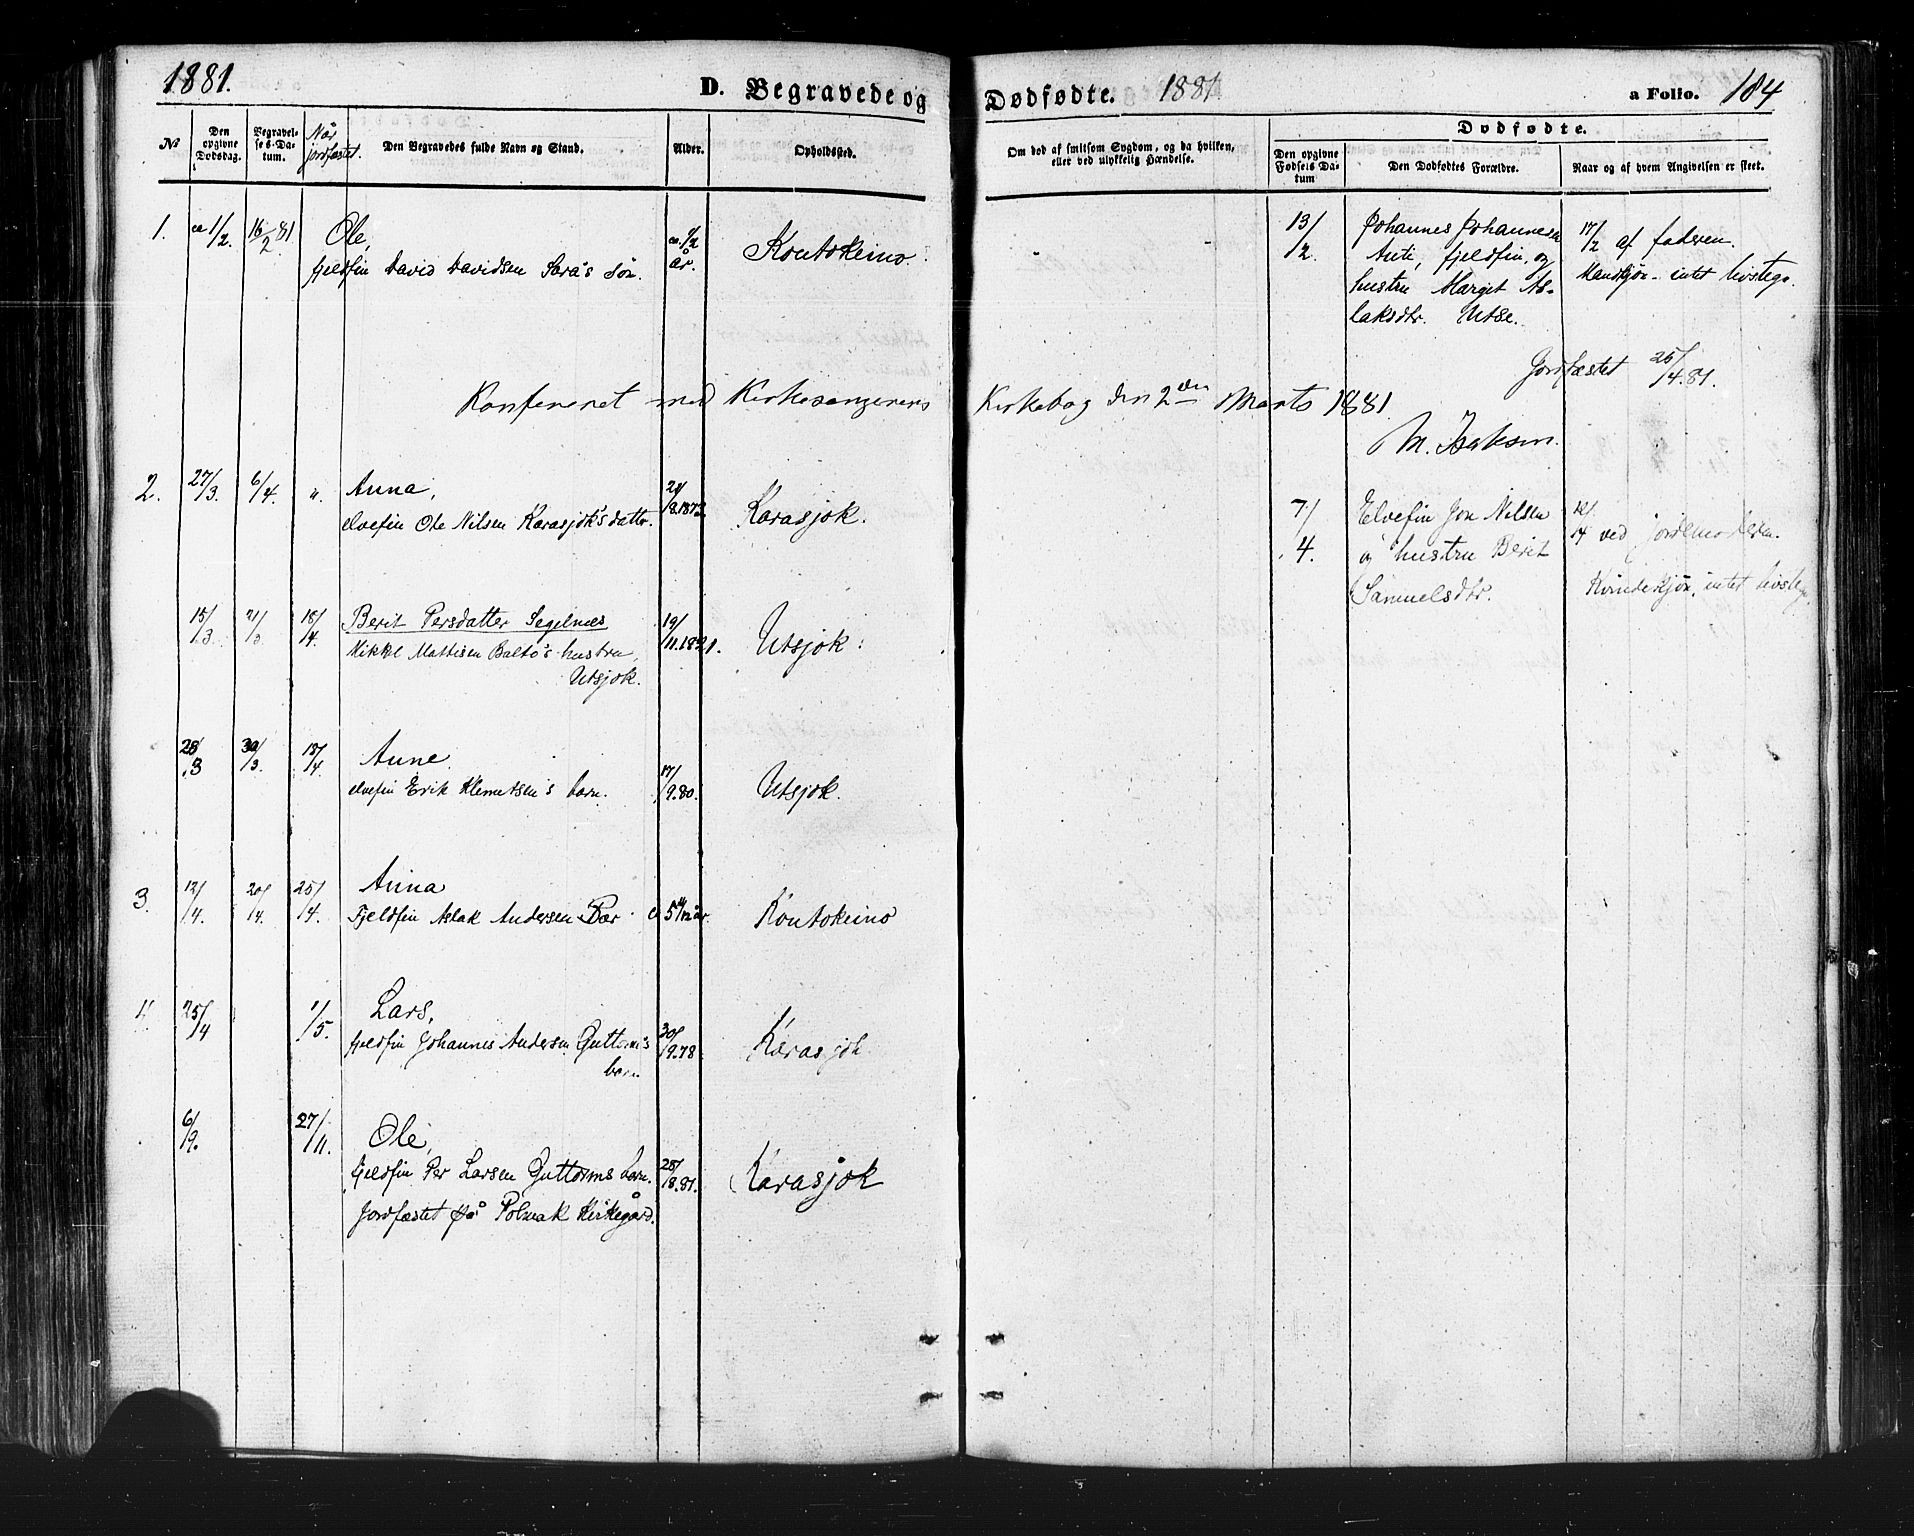 1881.
D. Begravede og
Dødfødte. 1881
a Folio. 184
№
Den opgivne Dødsdag.
Begravelses-Datum.
Når jordfæstet.
Den Begravedes fulde Navn og Stand.
Alder.
Opholdssted.
Om død af smitsom Sygdom, og da hvilken, eller ved ulykkelig Hændelse.
Dødfødte.
Den opgivne Fødsels Datum
Den Dødfødtes Forældre.
Naar og af hvem Angivelsen er skeet.
1. ca 1/2. 16/2 81 Ole, ca. 1/2 år. Koutokeino.
fjeldfin David Davidsen Sara's søn.
13/2. Johannes Johannesen
Anti, fjeldfin, og
hustru Marget As-
laksdtr. Utse.
17/2 af faderen.
Mandkjøn - intet livstegn.
Jordfæstet 25/4.81.
Konfereret med Kirkesangerens Kirkebog den 2den Marts 1881.
M. Isaksen.
2. 27/3. 6/4. ". Anna, Karasjok.
elvefin Ole Nilsen Karasjok's datter.
7/4. Elvefin Jon Nilsen
og hustru Berit
Samuelsdtr.
ved jordemoderen.
Kvindekjøn, intet livstegn
15/3 21/3 18/4. Berit Persdatter Segelnæs 19/11.1821. Utsjok.
Mikkel Mathisen Balto's hustru,
Utsjok.
28/3 30/3. 18/4. Anne. 17/9.80. Utsjok.
elvefin Erik Klemetsen's barn.
3. 12/4. 20/4. 25/4. Anna Koutokeino
Fjeldfin Aslak Andersen Bær
4. 25/4 1/5. Lars, 30/9.78 Karasjok.
fjeldfin Johannes Andersen Guttorm's
barn.
6/9. 27/11. Ole, 28/8.81. Karasjok
fjeldfin Per Larsen Guttorms barn.
Jordfæstet på Polmak Kirkegård.